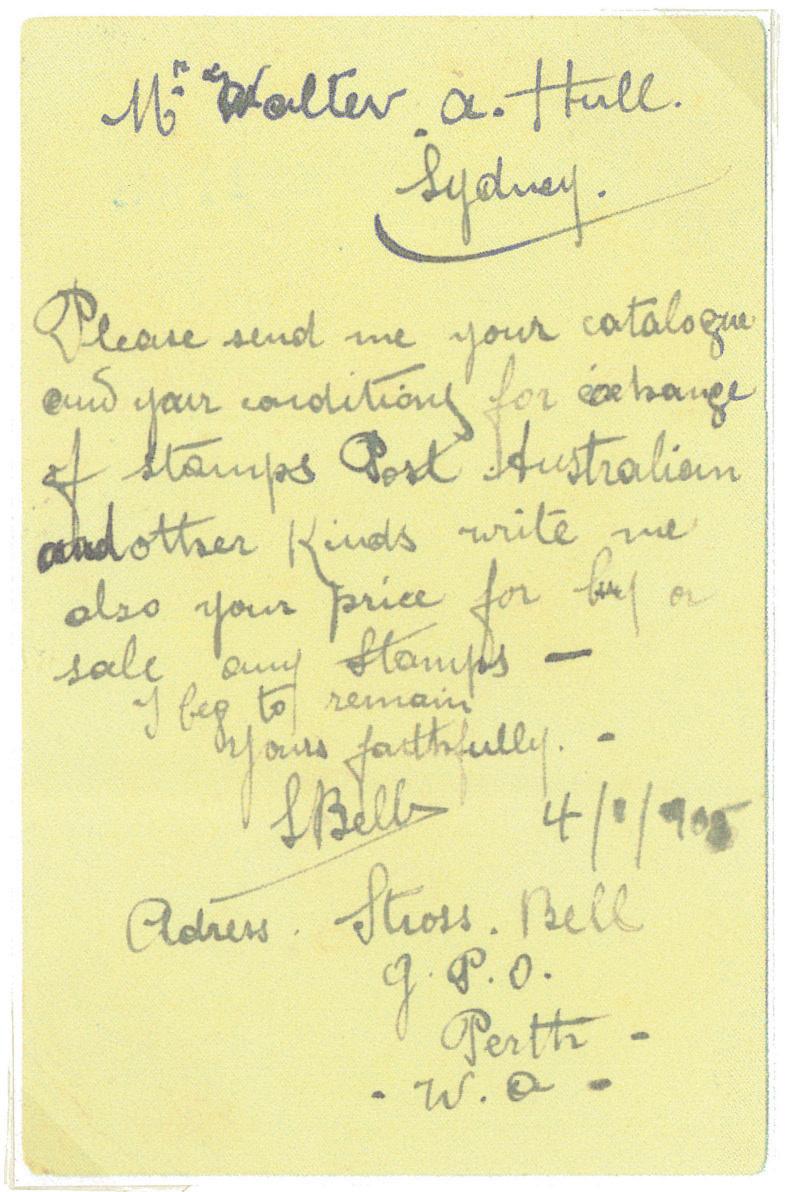 Mr Walter A. Hull.
Sydney.
Please send me your catalogue
and your conditions for exchange
of stamps Post Australian
and other Kinds write me
also your price for buy or
sale any Stamps —
I beg to remain
Yours faithfully. -
SBell 4/1/905
Adress. Stross. Bell
G. P. O.
Perth -
- W. A -